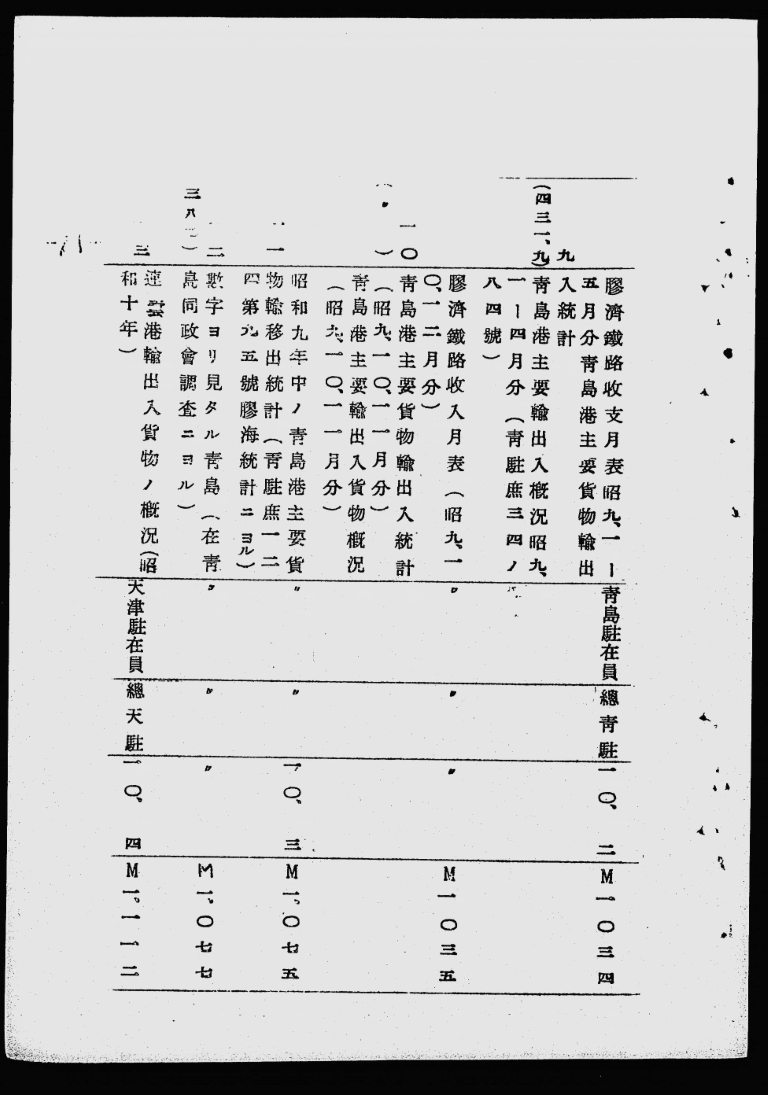 膠濟鐵路收支月表昭九、一ー 靑島駐在員 總靑駐 一〇、二 M一〇三四
五月分靑島港主要貨物輸出
九 入統計
(四三一、九) 靑島港主要輸出入槪況昭九、
一ー四月分(靑駐庶三四ノ
八四號)
膠濟鐵路收入月表(昭九、一 〃 〃 〃 M一〇三五
〇、一二月分)
一〇 靑島港主要貨物輸出入統計
(〃) (昭九、一〇、一一月分)
靑島港主要輸出入貨物槪況
(昭九、一〇、一一月分)
昭和九年中ノ靑島港主要貨 〃 〃 一〇、三 M一、〇七五
一一 物輸移出統計(靑駐庶一二
四第九五號膠海統計ニヨル)
二 數字ヨリ見タル靑島(在靑 〃 〃 〃 M一、〇七七
三八 島同政會調査ニヨル)
三 連雲港輸出入貨物ノ槪況(昭 天津駐在員 總天駐 一〇、四 M一、一一二
和十年)